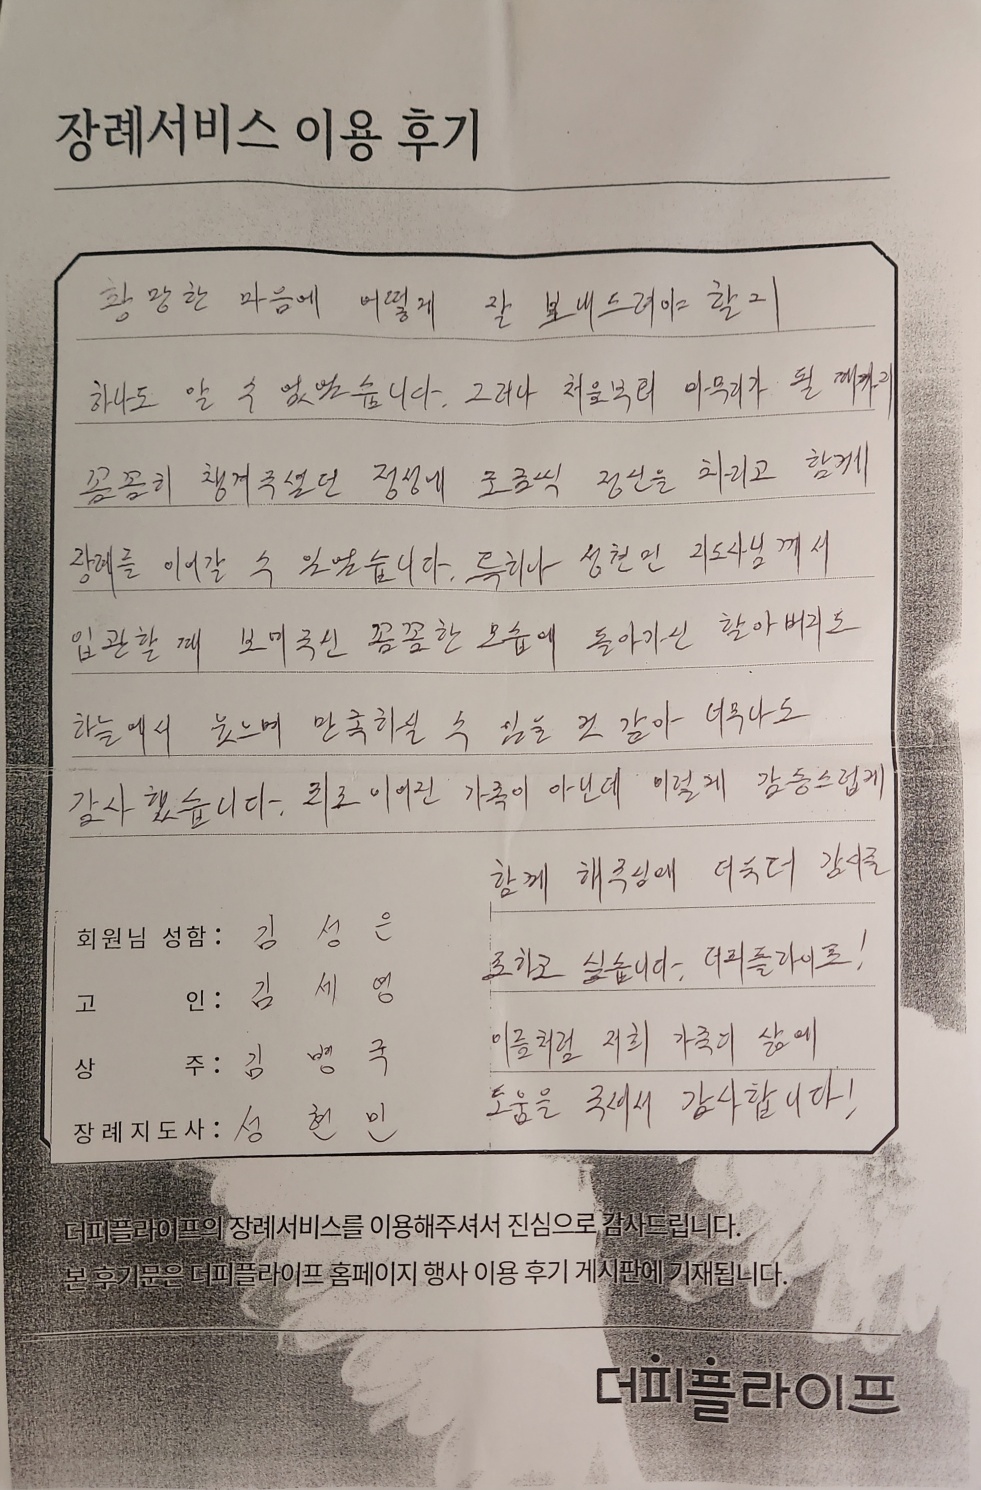 장례서비스 이용 후기
황망한 마음에 어떻게 잘 보내드려야 할지
하나도 알 수 없었습니다. 그러나 처음부터 마무리가 될 때까지
꼼꼼히 챙겨주셨던 정성에 조금씩 정신을 차리고 함께
장례를 이어갈 수 있었습니다. 특히나 성현민 지도사님께서
입관할 때 보여주신 꼼꼼한 모습에 돌아가신 할아버지도
하늘에서 웃으며 만족하실 수 있을 것 같아 너무나도
감사했습니다. 피로 이어진 가족이 아닌데 이렇게 감동스럽게
함께 해주심에 더욱더 감사를
표하고 싶습니다. 더피플라이프!
이름처럼 저희 가족의 삶에
도움을 주셔서 감사합니다!
회원님 성함: 김성은
고 인: 김세영
상 주: 김병국
장례지도사: 성현민
더피플라이프의 장례서비스를 이용해주셔서 진심으로 감사드립니다.
본 후기문은 더피플라이프 홈페이지 행사 이용 후기 게시판에 기재됩니다.
더피플라이프